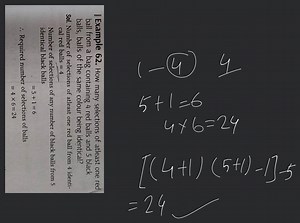 Example 62. How many selections of atleast one red
ball from a bag containing 4 red balls and 5 black
balls, balls of the same colour being identical?
Sol. Number of selections of atleast one red ball from 4 identi-
cal red balls = 4
Number of selections of any number of black balls from 5
identical black balls
= 5 + 1 = 6
∴ Required number of selections of balls
= 4 × 6 = 24
1 – 4 4
5+1=6
4×6=24
[(4+1) (5+1)-1]-5
=24 ✓